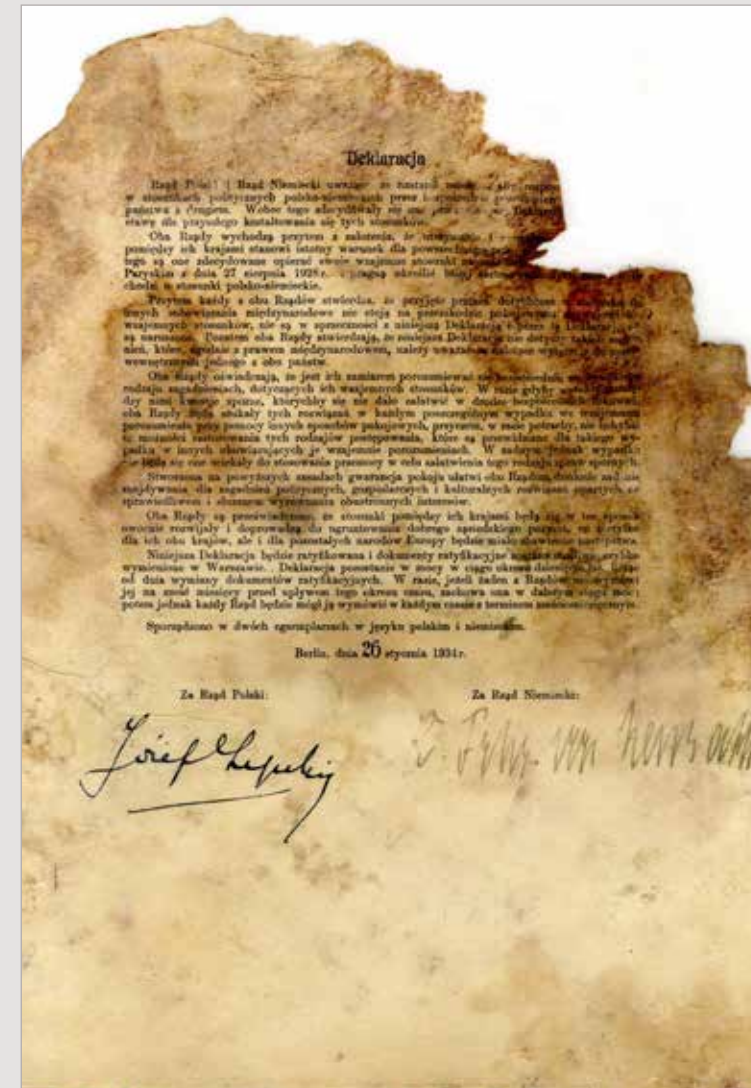 Deklaracja
Rząd Polski i Rząd Niemiecki uważają, że nastąpił
w stosunkach politycznych polsko-niemieckich przez bezpośrednie
państwa z drugiem. Wobec tego zdecydowały się one
stawę dla przyszłego kształtowania się tych stosunków.
Oba Rządy wychodzą przytem z założenia, że utrzymanie i
pomiędzy ich krajami stanowi istotny warunek dla powszechnego
tego są one zdecydowane opierać swoje wzajemne stosunki na
Paryskim z dnia 27 sierpnia 1928 r. i pragną określić bliżej zastosowanie
chodzi o stosunki polsko-niemieckie.
Przytem każdy z obu Rządów stwierdza, że przyjęte przezeń dotychczas
innych zobowiązania międzynarodowe nie stoją na przeszkodzie pokojowemu
wzajemnych stosunków, nie są w sprzeczności z niniejszą Deklaracją i przez tę Deklarację nie
są naruszone. Pozatem oba Rządy stwierdzają, że niniejsza Deklaracja nie dotyczy takich
nień, które, zgodnie z prawem międzynarodowem, należy uważać za należące wyłącznie do spraw
wewnętrznych jednego z obu państw.
Oba Rządy oświadczają, że jest ich zamiarem porozumiewać się bezpośrednio
rodzaju zagadnieniach, dotyczących ich wzajemnych stosunków. W razie gdyby
dzy nimi kwestje sporne, którychby się nie dało załatwić w drodze bezpośrednich
oba Rządy będą szukały tych rozwiązań w każdym poszczególnym wypadku we wzajemnem
porozumieniu przy pomocy innych sposobów pokojowych, przyczem, w razie potrzeby, nie uchybia
to możności zastosowania tych rodzajów postępowania, które są przewidziane dla takiego wy-
padku w innych obowiązujących je wzajemnie porozumieniach. W żadnym jednak wypadku
nie będą się one uciekały do stosowania przemocy w celu załatwienia tego rodzaju spraw spornych.
Stworzona na powyższych zasadach gwarancja pokoju ułatwi obu Rządom doniosłe zadanie
znajdywania dla zagadnień politycznych, gospodarczych i kulturalnych rozwiązań opartych na
sprawiedliwem i słusznem wyrównaniu obustronnych interesów.
Oba Rządy są przeświadczone, że stosunki pomiędzy ich krajami będą się w ten sposób
owocnie rozwijały i doprowadzą do ugruntowania dobrego sąsiedzkiego pożycia, co nie tylko
dla ich obu krajów, ale i dla pozostałych narodów Europy będzie miało zbawienne następstwa.
Niniejsza Deklaracja będzie ratyfikowana i dokumenty ratyfikacyjne zostaną możliwie szybko
wymienione w Warszawie. Deklaracja pozostanie w mocy w ciągu okresu dziesięciu lat, licząc
od dnia wymiany dokumentów ratyfikacyjnych. W razie, jeżeli żaden z Rządów nie wymówi
jej na sześć miesięcy przed upływem tego okresu czasu, zachowa ona w dalszym ciągu moc;
potem jednak każdy Rząd będzie mógł ją wymówić w każdym czasie z terminem sześciomiesięcznym.
Sporządzono w dwóch egzemplarzach w języku polskim i niemieckim.
Berlin, dnia 26 stycznia 1934 r.
Za Rząd Polski: Za Rząd Niemiecki:
Józef Lipski